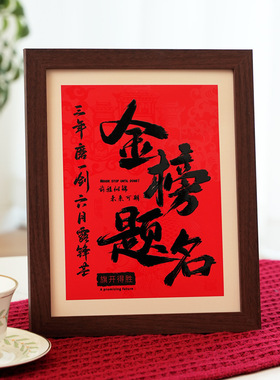 金榜题名
三年磨一剑 六月露锋芒
NEVER STOP UNTIL START
前程似锦
未来可期
旗开得胜
A promising future